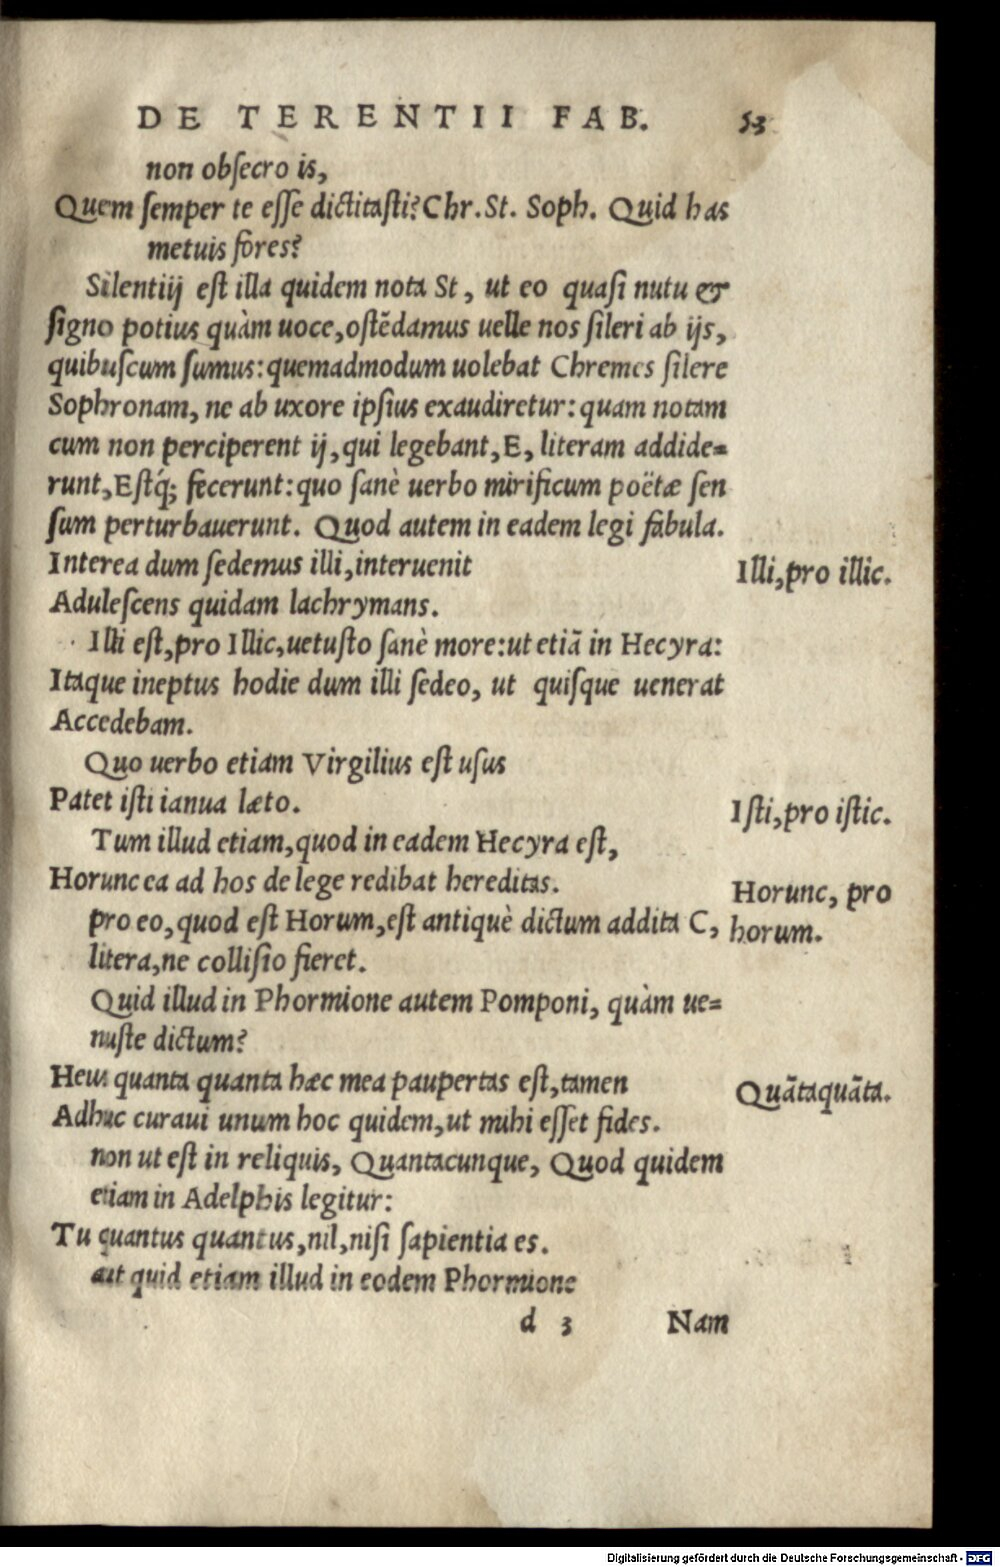 DE TERENTII FAB. 53
non obſecro is,
Quem ſemper te eſſe dictitaſti? Chr. St. Soph. Quid has
metuis fores?
Silentiij eſt illa quidem nota St, ut eo quaſi nutu &
ſigno potius quàm uoce, oſtẽdamus uelle nos ſileri ab ijs,
quibuſcum ſumus: quemadmodum uolebat Chremes ſilere
Sophronam, ne ab uxore ipſius exaudiretur: quam notam
cum non perciperent ij, qui legebant, E, literam addide=
runt, Eſtq́; fecerunt: quo ſanè uerbo mirificum poëtæ ſen
ſum perturbauerunt. Quod autem in eadem legi fabula.
Interea dum ſedemus illi, interuenit
Illi, pro illic.
Aduleſcens quidam lachrymans.
Illi eſt, pro Illic, uetuſto ſanè more: ut etiã in Hecyra:
Itaque ineptus hodie dum illi ſedeo, ut quiſque uenerat
Accedebam.
Quo uerbo etiam Virgilius eſt uſus
Patet iſti ianua læto.
Iſti, pro iſtic.
Tum illud etiam, quod in eadem Hecyra eſt,
Horunc ea ad hos de lege redibat hereditas.
Horunc, pro
horum.
pro eo, quod eſt Horum, eſt antiquè dictum addita C,
litera, ne colliſio fieret.
Quid illud in Phormione autem Pomponi, quàm ue=
nuſte dictum?
Heus quanta quanta hæc mea paupertas eſt, tamen
Quãtaquãta.
Adhuc curaui unum hoc quidem, ut mihi eſſet fides.
non ut eſt in reliquis, Quantacunque, Quod quidem
etiam in Adelphis legitur:
Tu quantus quantus, nil, niſi ſapientia es.
aut quid etiam illud in eodem Phormione
d 3 Nam
Digitalisierung gefördert durch die Deutsche Forschungsgemeinschaft - DFG